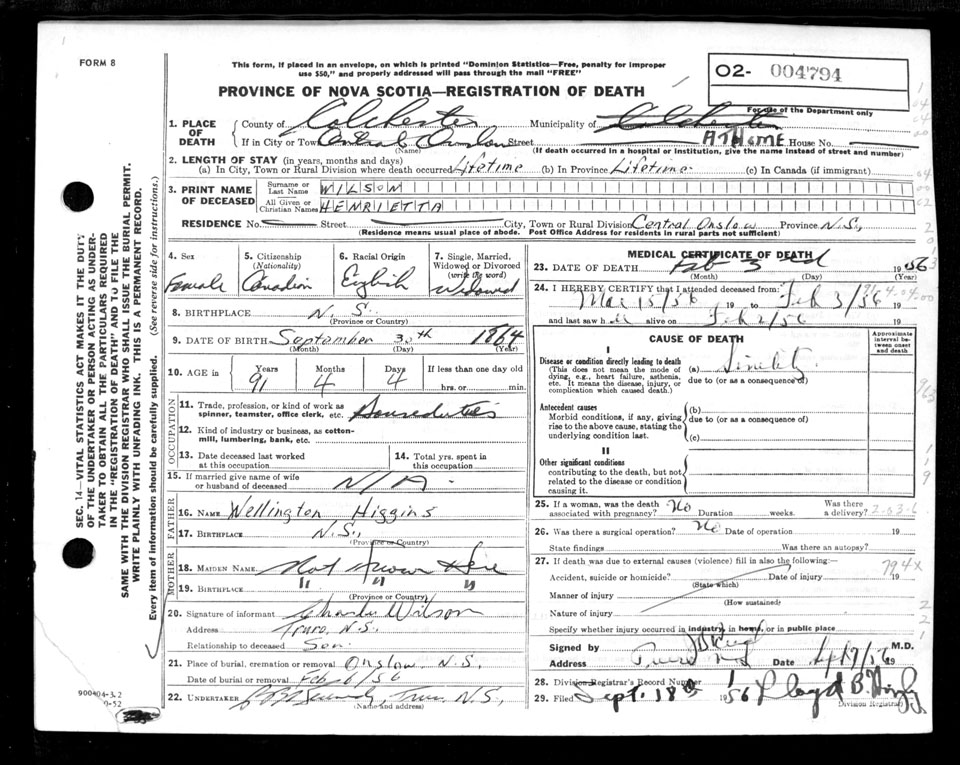 FORM 8
This form, if placed in an envelope, on which is printed "Dominion Statistics—Free, penalty for improper
use $50," and properly addressed will pass through the mail "FREE"
O2- 004794
PROVINCE OF NOVA SCOTIA—REGISTRATION OF DEATH
For use of the Department only
1. PLACE OF DEATH
County of Colchester Municipality of Colchester
If in City or Town Central Onslow Street AT HOME House No.
(Name) (If death occurred in a hospital or institution, give the name instead of street and number)
2. LENGTH OF STAY (in years, months and days)
(a) In City, Town or Rural Division where death occurred Lifetime (b) In Province Lifetime (c) In Canada (if immigrant)
3. PRINT NAME OF DECEASED
Surname or Last Name WILSON
All Given or Christian Names HENRIETTA
RESIDENCE No. Street City, Town or Rural Division Central Onslow Province N.S.,
(Residence means usual place of abode. Post Office Address for residents in rural parts not sufficient)
4. Sex Female
5. Citizenship (Nationality) Canadian
6. Racial Origin English
7. Single, Married, Widowed or Divorced (write the word) Widowed
8. BIRTHPLACE N.S.
(Province or Country)
9. DATE OF BIRTH September 30th 1864
(Month) (Day) (Year)
10. AGE in Years Months Days If less than one day old
91 4 4 hrs. or min.
OCCUPATION
11. Trade, profession, or kind of work as
spinner, teamster, office clerk, etc. Houseduties
12. Kind of industry or business, as cotton-
mill, lumbering, bank, etc.
13. Date deceased last worked
at this occupation
14. Total yrs. spent in
this occupation
15. If married give name of wife
or husband of deceased N/A
FATHER
16. NAME Wellington Higgins
17. BIRTHPLACE N.S.,
(Province or Country)
MOTHER
18. MAIDEN NAME Not Known Here
19. BIRTHPLACE " " "
(Province or Country)
20. Signature of informant Charles Wilson
Address Truro, N.S.
Relationship to deceased Son
21. Place of burial, cremation or removal Onslow N.S.
Date of burial or removal Feb 6/56
22. UNDERTAKER N.S.,
(Name and address)
MEDICAL CERTIFICATE OF DEATH
23. DATE OF DEATH Feb 3 1956
(Month) (Day) (Year)
24. I HEREBY CERTIFY that I attended deceased from:
Mar 15/56 19 to Feb 3/56 19
and last saw h alive on Feb 2/56 19
CAUSE OF DEATH
Approximate interval between onset and death
I
Disease or condition directly leading to death
(This does not mean the mode of
dying, e.g., heart failure, asthenia,
etc. It means the disease, injury, or
complication which caused death.)
(a) Senility
due to (or as a consequence of)
Antecedent causes
Morbid conditions, if any, giving
rise to the above cause, stating the
underlying condition last.
(b)
due to (or as a consequence of)
(c)
II
Other significant conditions
contributing to the death, but not
related to the disease or condition
causing it.
25. If a woman, was the death
associated with pregnancy? No Duration weeks. Was there
a delivery?
26. Was there a surgical operation? No Date of operation 19
State findings Was there an autopsy?
27. If death was due to external causes (violence) fill in also the following:— 794X
Accident, suicide or homicide? Date of injury 19
(State which)
Manner of injury
(How sustained)
Nature of injury
Specify whether injury occurred in industry, in home, or in public place
Signed by M.D.
Address Truro Date
28. Division Registrar's Record Number
29. Filed Sept. 18th 1956 Lloyd B.
Division Registrar
SEC. 14—VITAL STATISTICS ACT MAKES IT THE DUTY
OF THE UNDERTAKER OR PERSON ACTING AS UNDER-
TAKER TO OBTAIN ALL THE PARTICULARS REQUIRED
IN THE "REGISTRATION OF DEATH" AND TO FILE THE
SAME WITH THE DIVISION REGISTRAR WHO SHALL ISSUE THE BURIAL PERMIT.
WRITE PLAINLY WITH UNFADING INK. THIS IS A PERMANENT RECORD.
Every item of information should be carefully supplied. (See reverse side for instructions.)